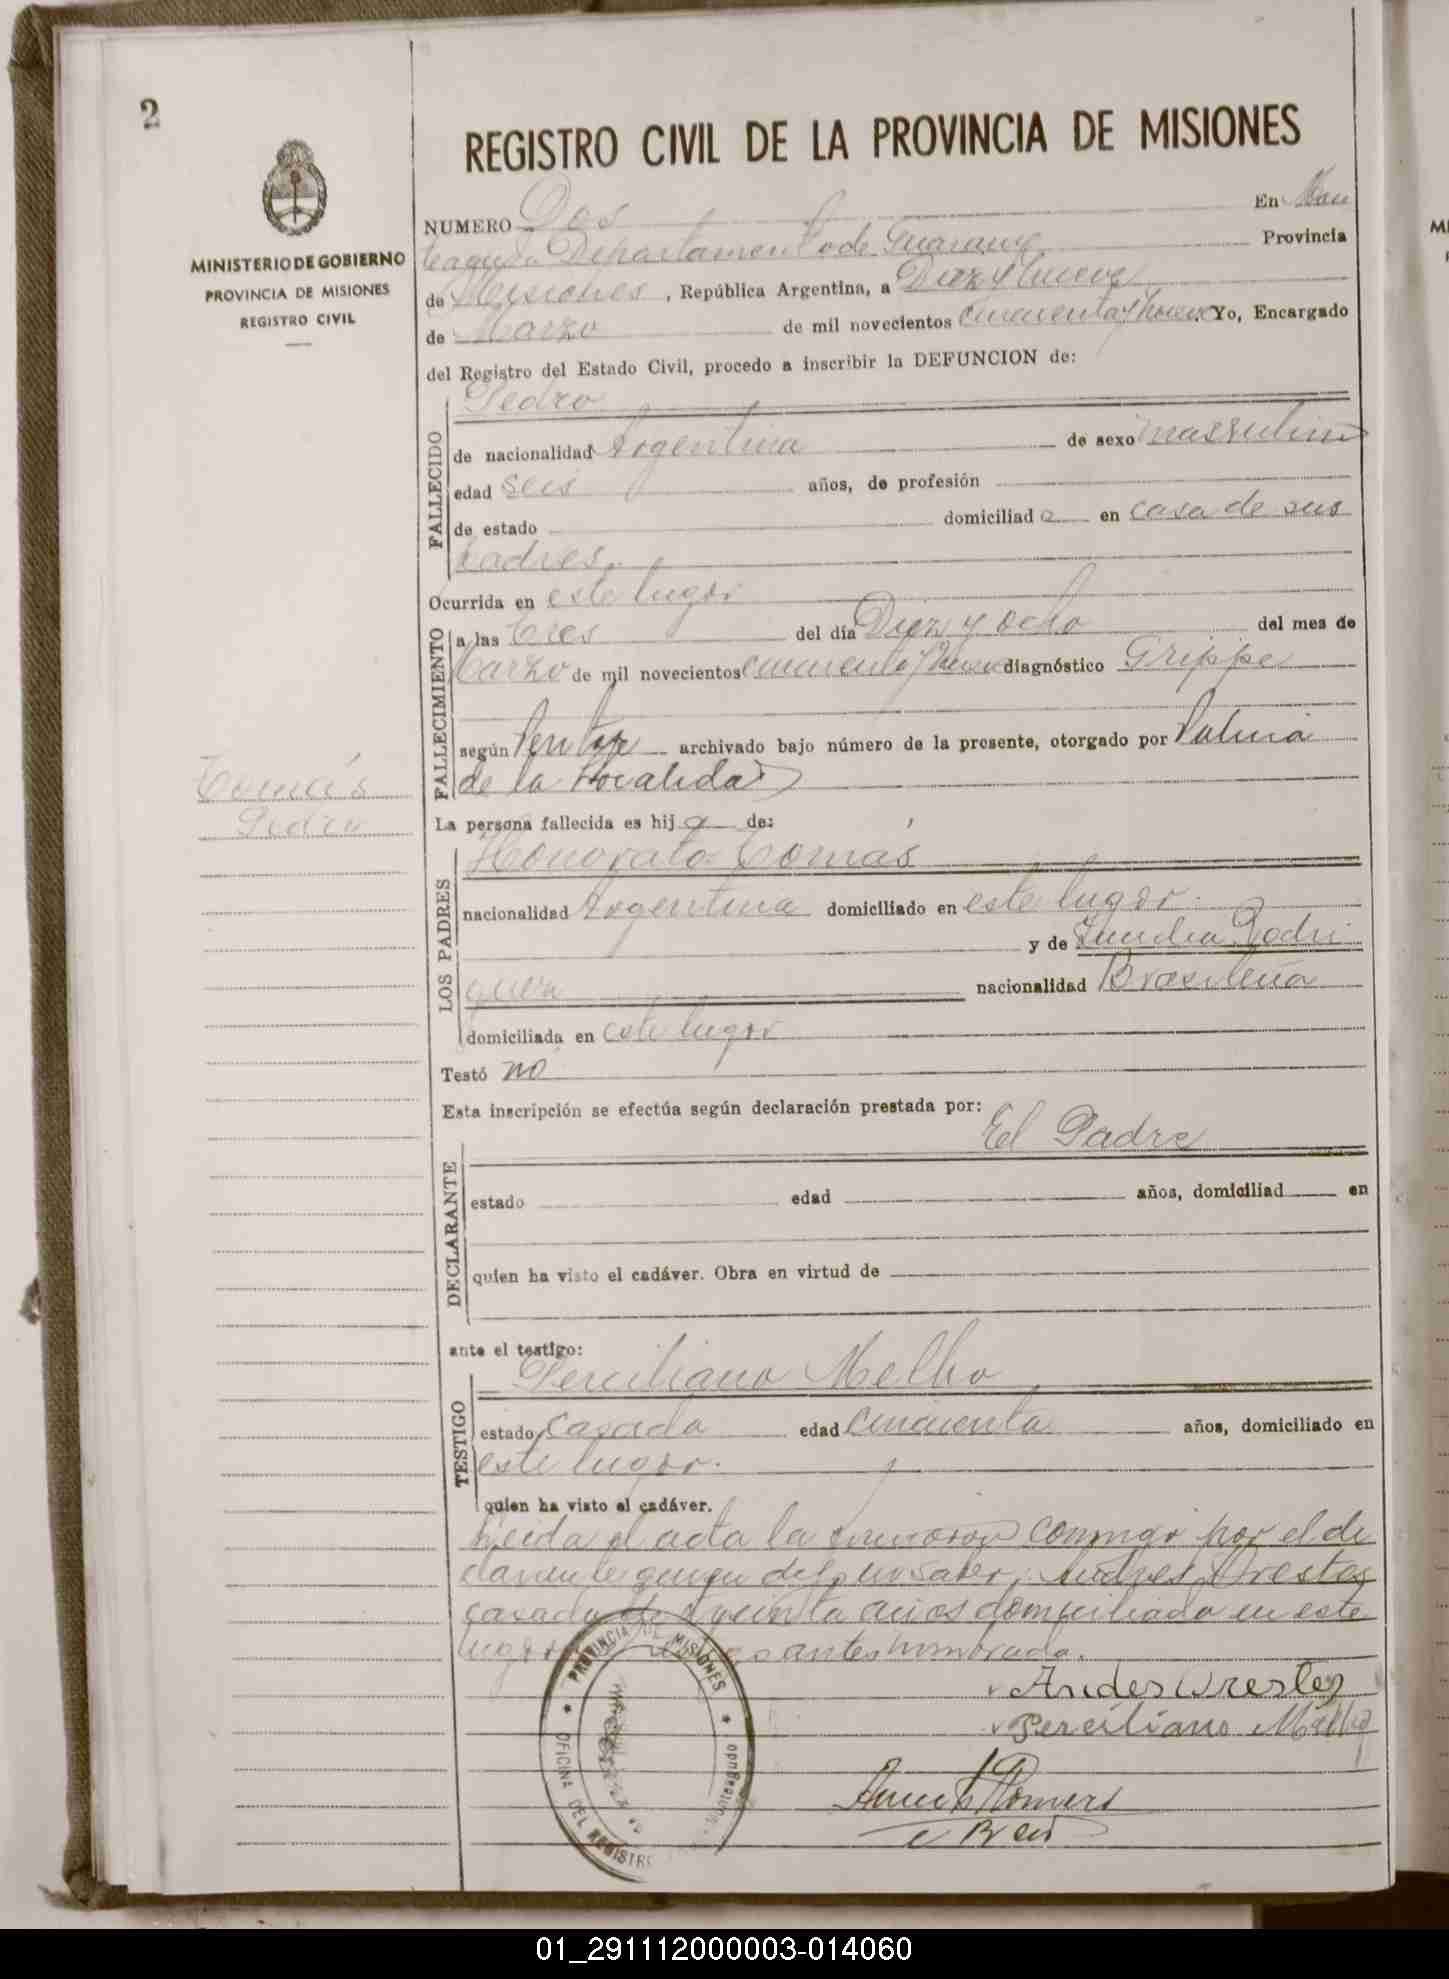 2
MINISTERIO DE GOBIERNO
PROVINCIA DE MISIONES
REGISTRO CIVIL
REGISTRO CIVIL DE LA PROVINCIA DE MISIONES
NUMERO Dos En Mon
teagudo Departamento de Guarany Provincia
de Misiones, República Argentina, a Diez y nueve
de Marzo de mil novecientos cincuenta y nueve. Yo, Encargado
del Registro del Estado Civil, procedo a inscribir la DEFUNCION de:
FALLECIDO
Pedro
de nacionalidad Argentina de sexo masculino
edad seis años, de profesión
de estado domiciliado en casa de sus
padres.
Ocurrida en este lugar
FALLECIMIENTO
a las tres del día Diez y ocho del mes de
Marzo de mil novecientos cincuenta y nueve diagnóstico Grippe
según archivado bajo número de la presente, otorgado por Policia
de la Localidad
Tomás
Pedro
La persona fallecida es hijo de:
LOS PADRES
Honorato Tomás
nacionalidad Argentina domiciliado en este lugar.
y de Rodri
guez nacionalidad Brasileña
domiciliada en este lugar
Testó no
Esta inscripción se efectúa según declaración prestada por:
El Padre
DECLARANTE
estado edad años, domiciliad en
quien ha visto el cadáver. Obra en virtud de
ante el testigo:
TESTIGO
Perciliano Mello
estado casado edad cincuenta años, domiciliado en
este lugar.
quien ha visto el cadáver.
Leida el acta la conmigo por el de
Andres Orestes
casado de años domiciliado en este
lugar antes nombrado.
Andes Orestes
Perciliano Mello
PROVINCIA DE MISIONES
OFICINA DEL REGISTRO
01_291112000003-014060